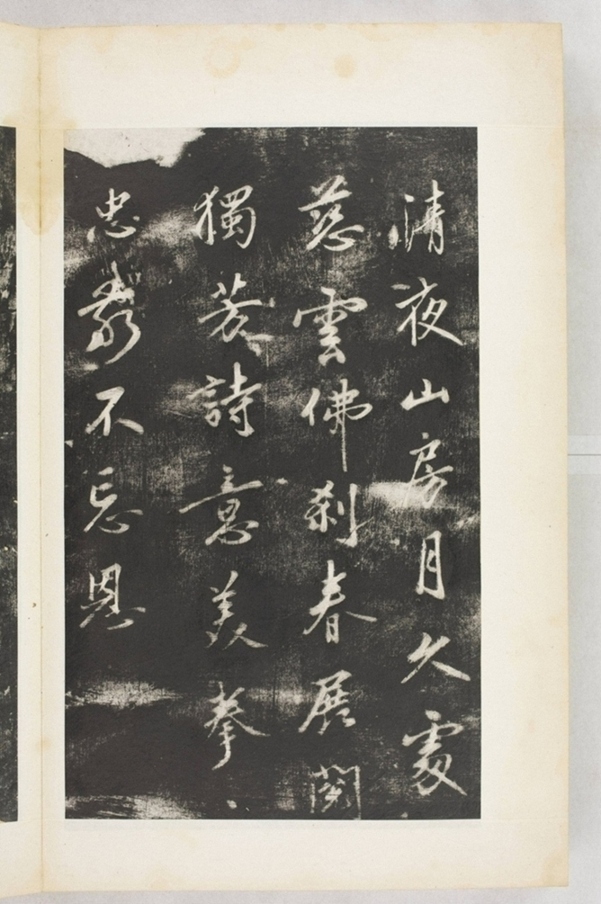 清夜山房月久處
慈雲佛刹春展閱
獨芳詩意美拳〻
忠義不忘恩